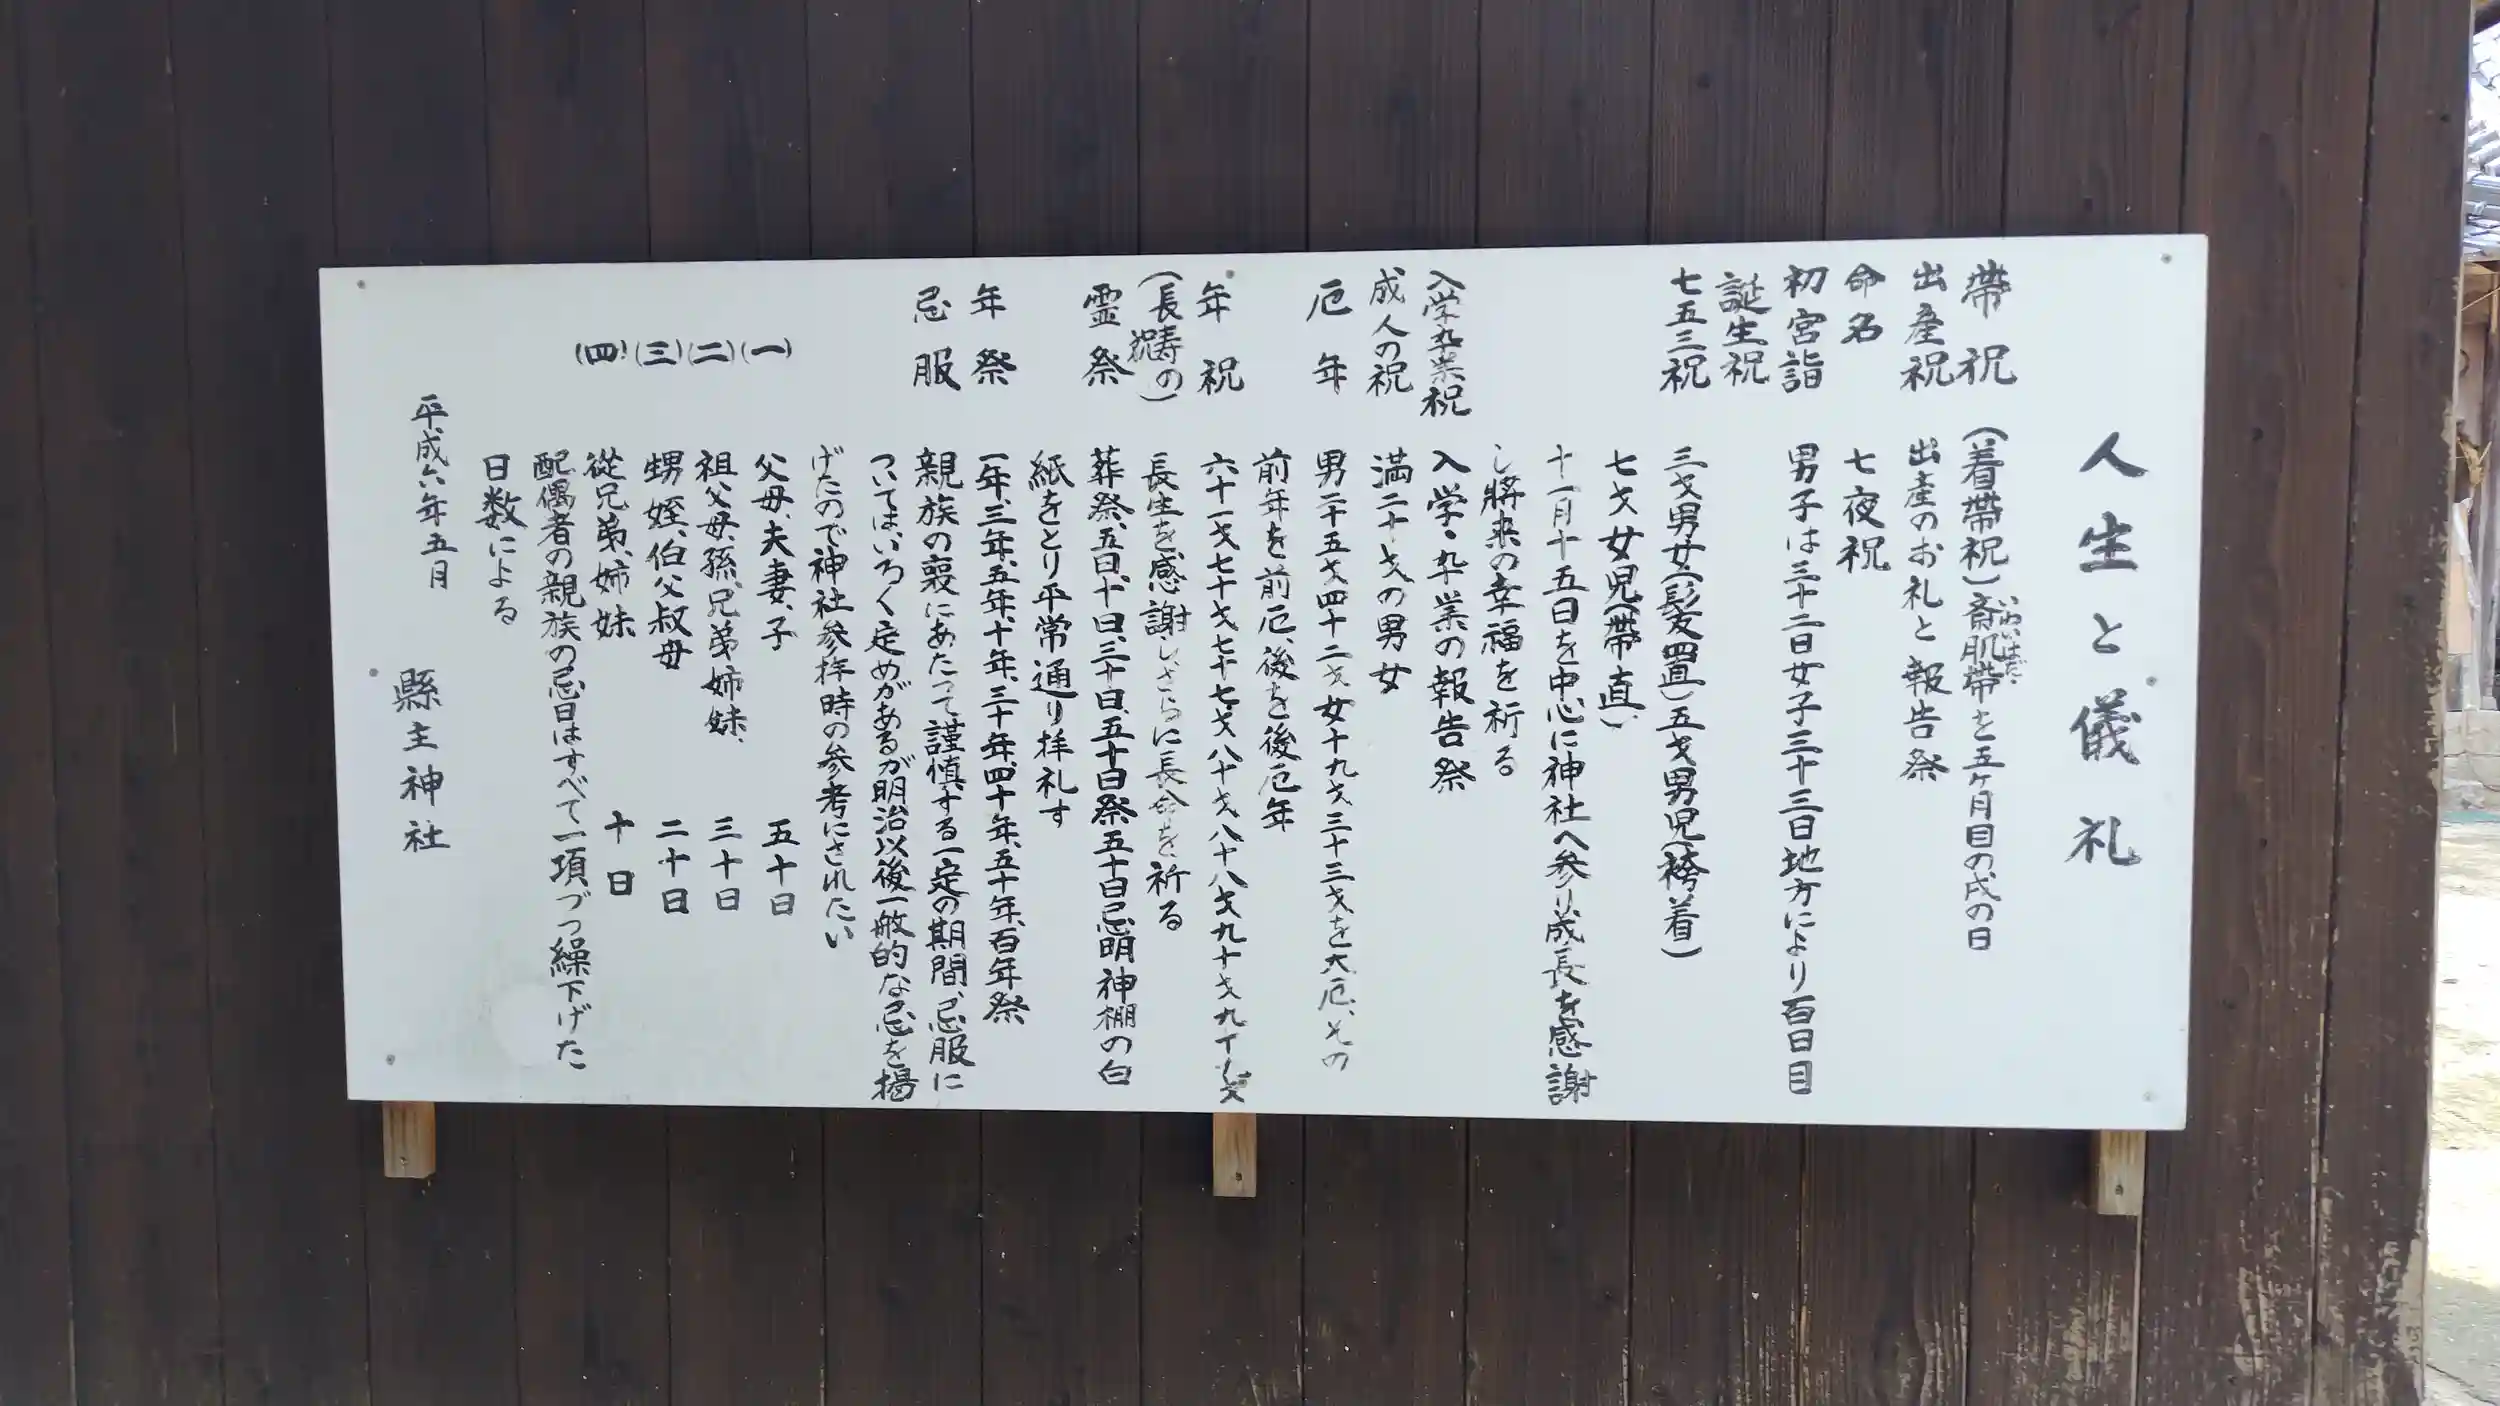 人生と儀礼
帯祝 (着帯祝)斎肌帯を五ヶ月目の戌の日
いわいはだ
出産祝 出産のお礼と報告祭
命名 七夜祝
初宮詣 男子は三十二日女子三十三日地方により百日目
誕生祝
七五三祝 三才男女(髪置)五才男児(袴着)
七才女児(帯直)
十一月十五日を中心に神社へ参り成長を感謝
し將来の幸福を祈る
入学卆業祝 入学・卆業の報告祭
成人の祝 満二十才の男女
厄年 男二十五才四十二才女十九才三十三才を大厄、その
前年を前厄、後を後厄年
年祝 六十一才七十才七十七才八十才八十八才九十才九十九才
(長寿の祝) 長生を感謝しさらに長命を祈る
霊祭 葬祭、五日、十日、三十日、五十日祭五十日忌明神棚の白
紙をとり平常通り拝礼す
年祭 一年、三年、五年、十年、三十年、四十年、五十年、百年祭
忌服 親族の喪にあたって謹慎する一定の期間、忌服に
ついてはいろ〱定めがあるが明治以後一般的な忌を掲
げたので神社参拝時の参考にされたい
(一) 父母、夫妻、子 五十日
(二) 祖父母、孫、兄弟姉妹、 三十日
(三) 甥、姪、伯父叔母 二十日
(四) 従兄弟、姉妹 十日
配偶者の親族の忌日はすべて一項づつ繰下げた
日数による
平成六年五月 縣主神社